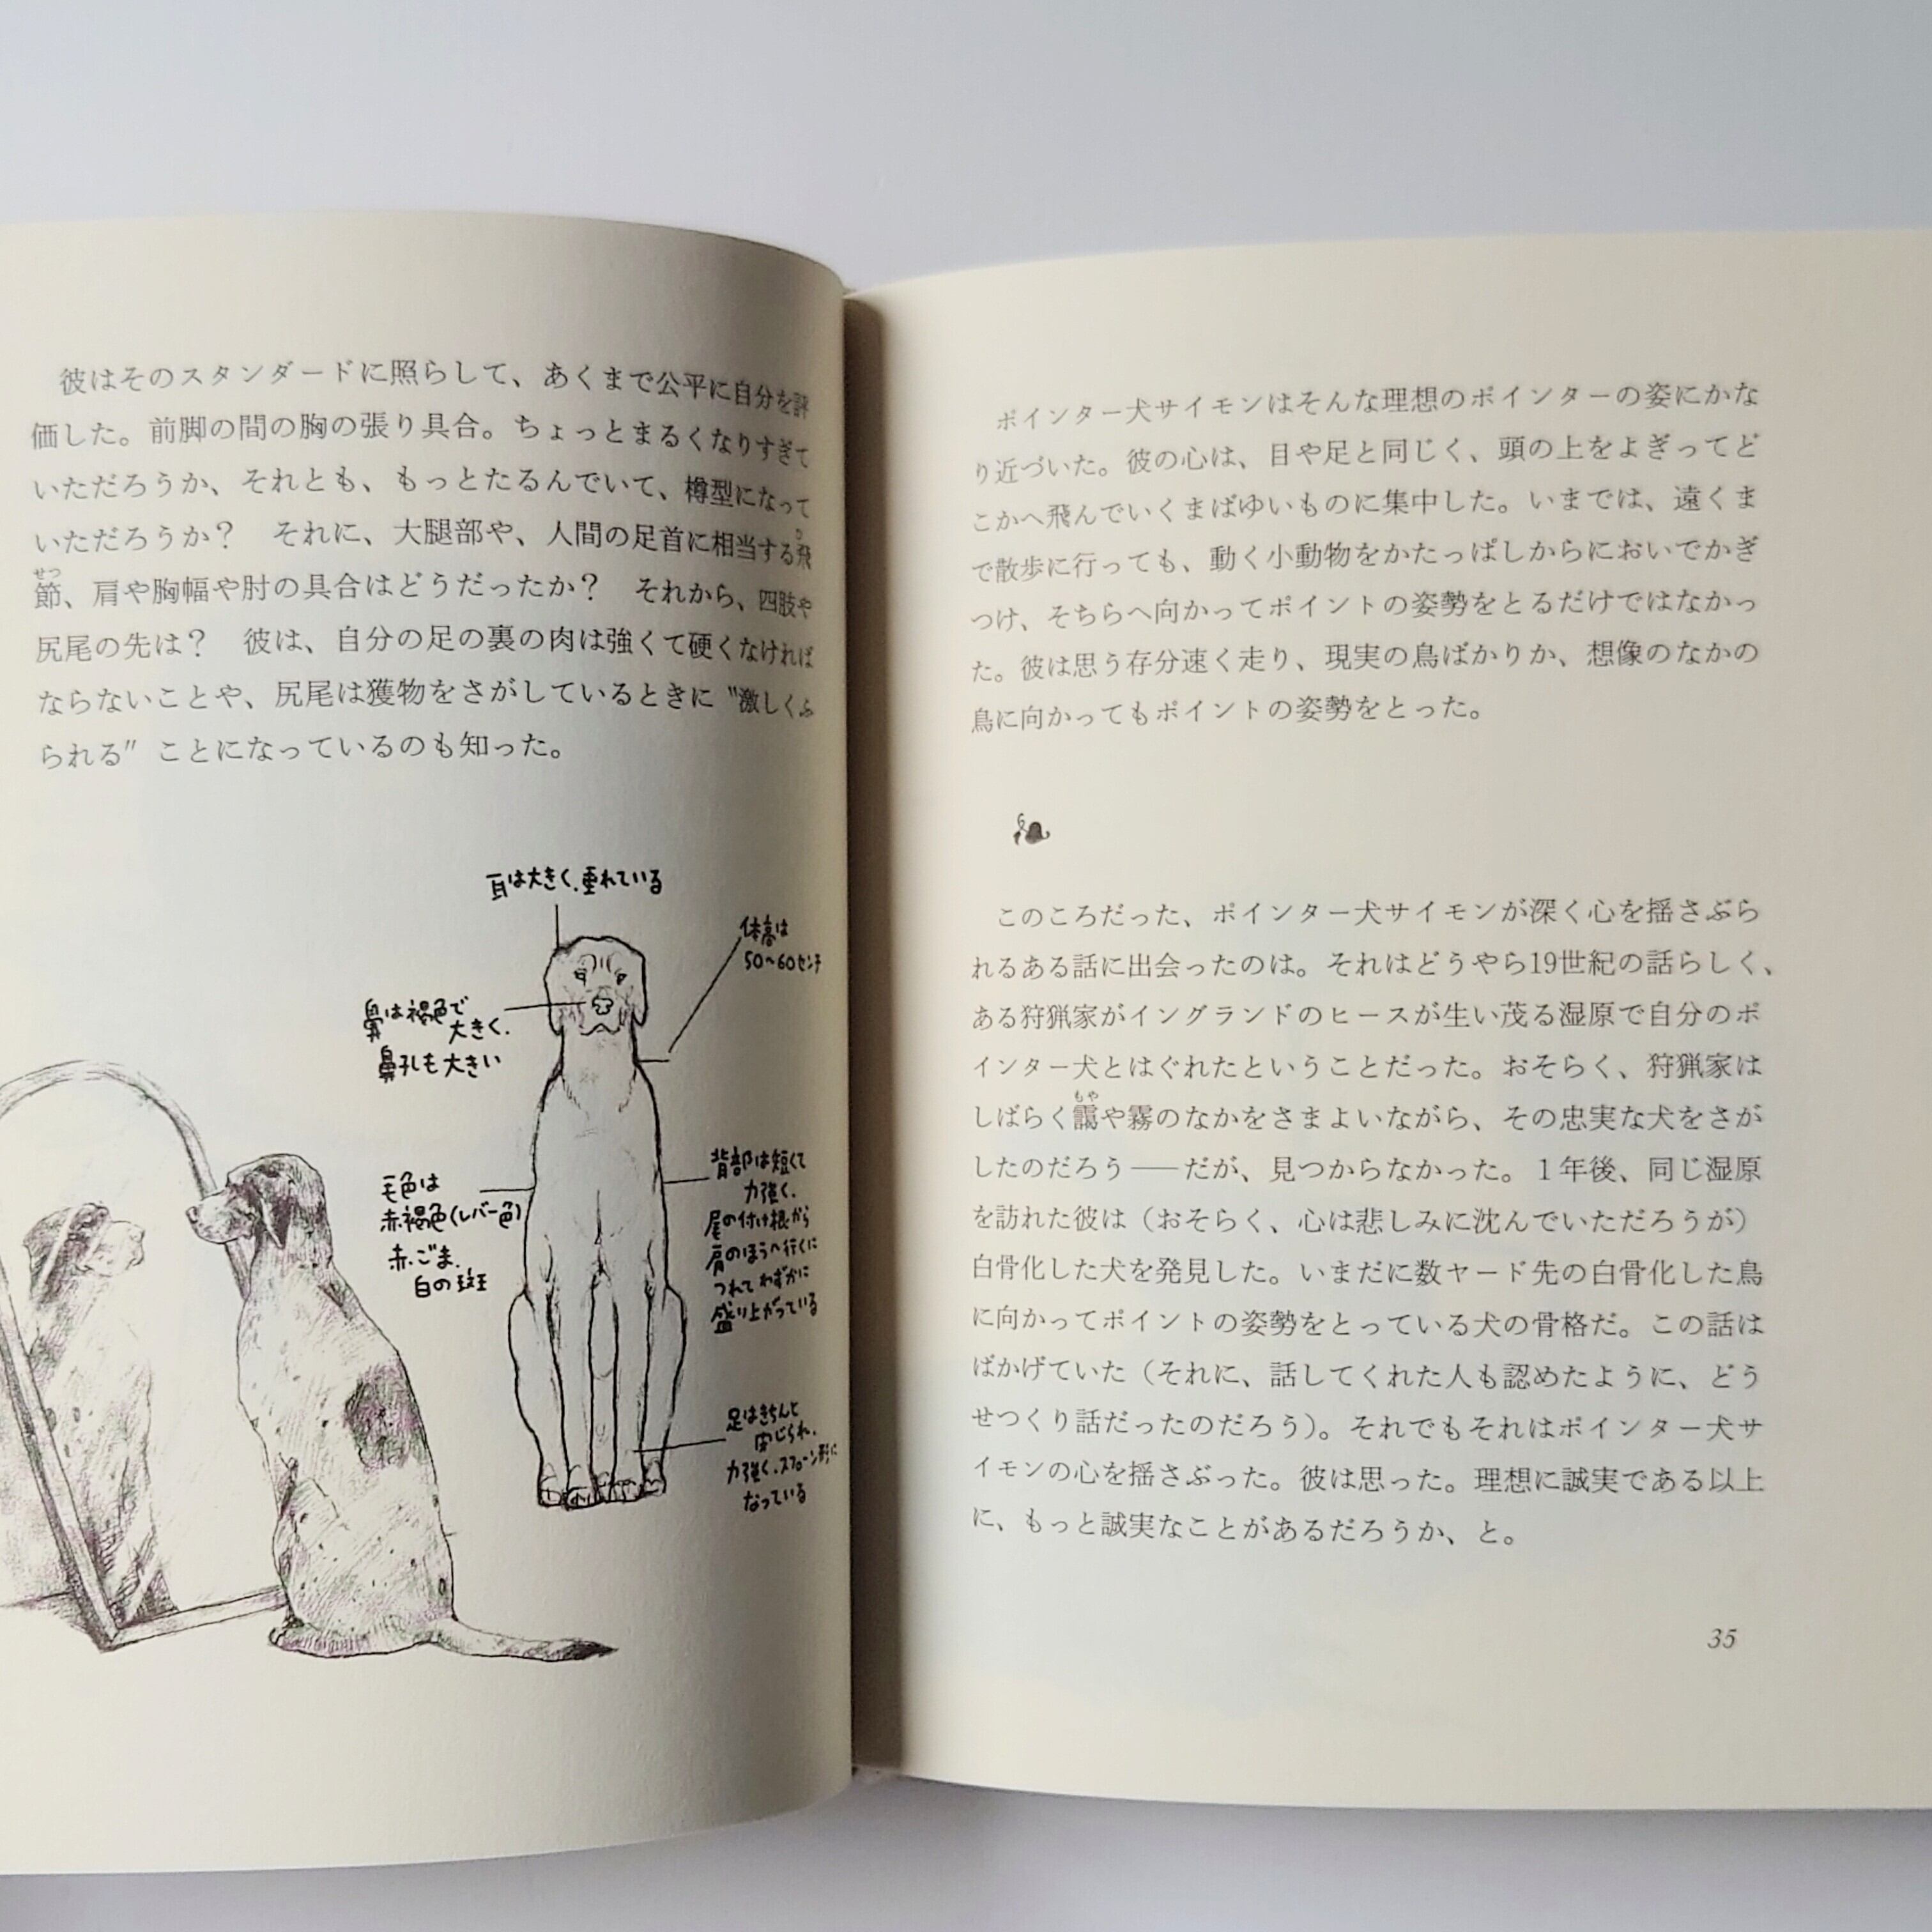 彼はそのスタンダードに照らして、あくまで公平に自分を評
価した。前脚の間の胸の張り具合。ちょっとまるくなりすぎて
いただろうか、それとも、もっとたるんでいて、樽型になって
いただろうか？　それに、大腿部や、人間の足首に相当する飛
ひ
せつ
節、肩や胸幅や肘の具合はどうだったか？　それから、四肢や
尻尾の先は？　彼は、自分の足の裏の肉は強くて硬くなければ
ならないことや、尻尾は獲物をさがしているときに〝激しくふ
られる〟ことになっているのも知った。
耳は大きく、垂れている
体高は
50〜60センチ
鼻は褐色で
大きく、
鼻孔も大きい
毛色は
赤褐色(レバー色)
赤、ごま、
白の斑
背部は短くて
力強く、
尾の付け根から
肩のほうへ行くに
つれてわずかに
盛り上がっている
足はきちんと
閉じられ、
力強く、スプーン形に
なっている
ポインター犬サイモンはそんな理想のポインターの姿にかな
り近づいた。彼の心は、目や足と同じく、頭の上をよぎってど
こかへ飛んでいくまばゆいものに集中した。いまでは、遠くま
で散歩に行っても、動く小動物をかたっぱしからにおいでかぎ
つけ、そちらへ向かってポイントの姿勢をとるだけではなかっ
た。彼は思う存分速く走り、現実の鳥ばかりか、想像のなかの
鳥に向かってもポイントの姿勢をとった。
このころだった、ポインター犬サイモンが深く心を揺さぶら
れるある話に出会ったのは。それはどうやら19世紀の話らしく、
ある狩猟家がイングランドのヒースが生い茂る湿原で自分のポ
インター犬とはぐれたということだった。おそらく、狩猟家は
もや
しばらく靄や霧のなかをさまよいながら、その忠実な犬をさが
したのだろう――だが、見つからなかった。１年後、同じ湿原
を訪れた彼は（おそらく、心は悲しみに沈んでいただろうが）
白骨化した犬を発見した。いまだに数ヤード先の白骨化した鳥
に向かってポイントの姿勢をとっている犬の骨格だ。この話は
ばかげていた（それに、話してくれた人も認めたように、どう
せつくり話だったのだろう）。それでもそれはポインター犬サ
イモンの心を揺さぶった。彼は思った。理想に誠実である以上
に、もっと誠実なことがあるだろうか、と。
35